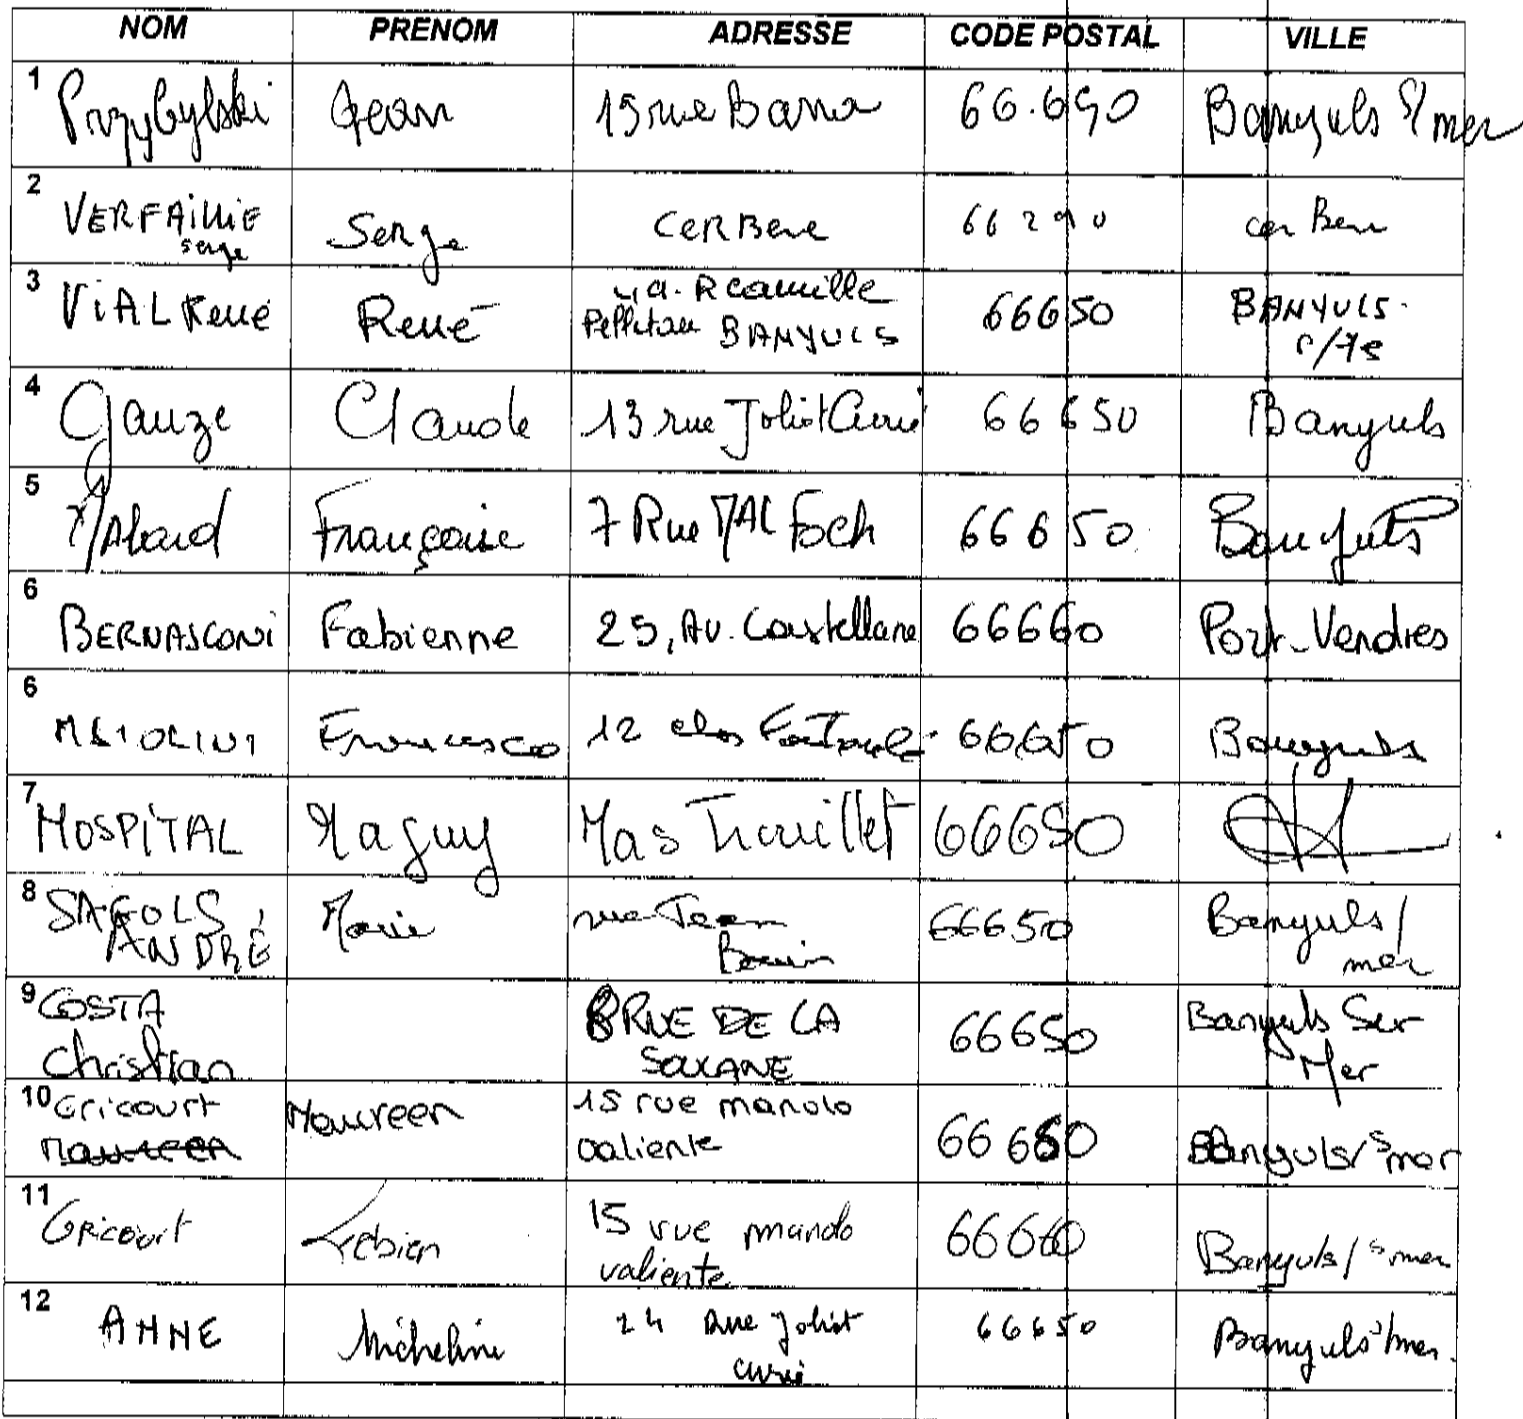 NOM PRENOM ADRESSE CODE POSTAL VILLE
1 Przybylski Jean 15 rue Barra 66.650 Banyuls s/mer
2 VERFAILLIE serge Serge CERBERE 66290 cerBere
3 ViAL René René 4 a. R camille Pelletan BANYULS 66650 BANYULS
4 Gauze Claude 13 rue Joliot Curie 66650 Banyuls
5 Malard Françoise 7 Rue MAL Foch 66650 Banyuls
6 BERNASCONi Fabienne 25, Av. Castellane 66660 Port-Vendres
6 Francesco 12 clos 66650 Banyuls
7 HOSPiTAL Maguy Mas Trouillet 66650
8 SAGOLS ANDRÉ Marie rue Jean Bouin 66650 Banyuls/mer
9 COSTA Christian 8 RUE DE LA SOLANE 66650 Banyuls Sur Mer
10 Gricourt Maureen Maureen 15 rue manolo valiente 66650 Banyuls/s mer
11 Gricourt Fabien 15 rue manolo valiente 66660 Banyuls/s mer
12 ANNE Micheline 24 Rue Joliot curie 66650 Banyuls s/mer.